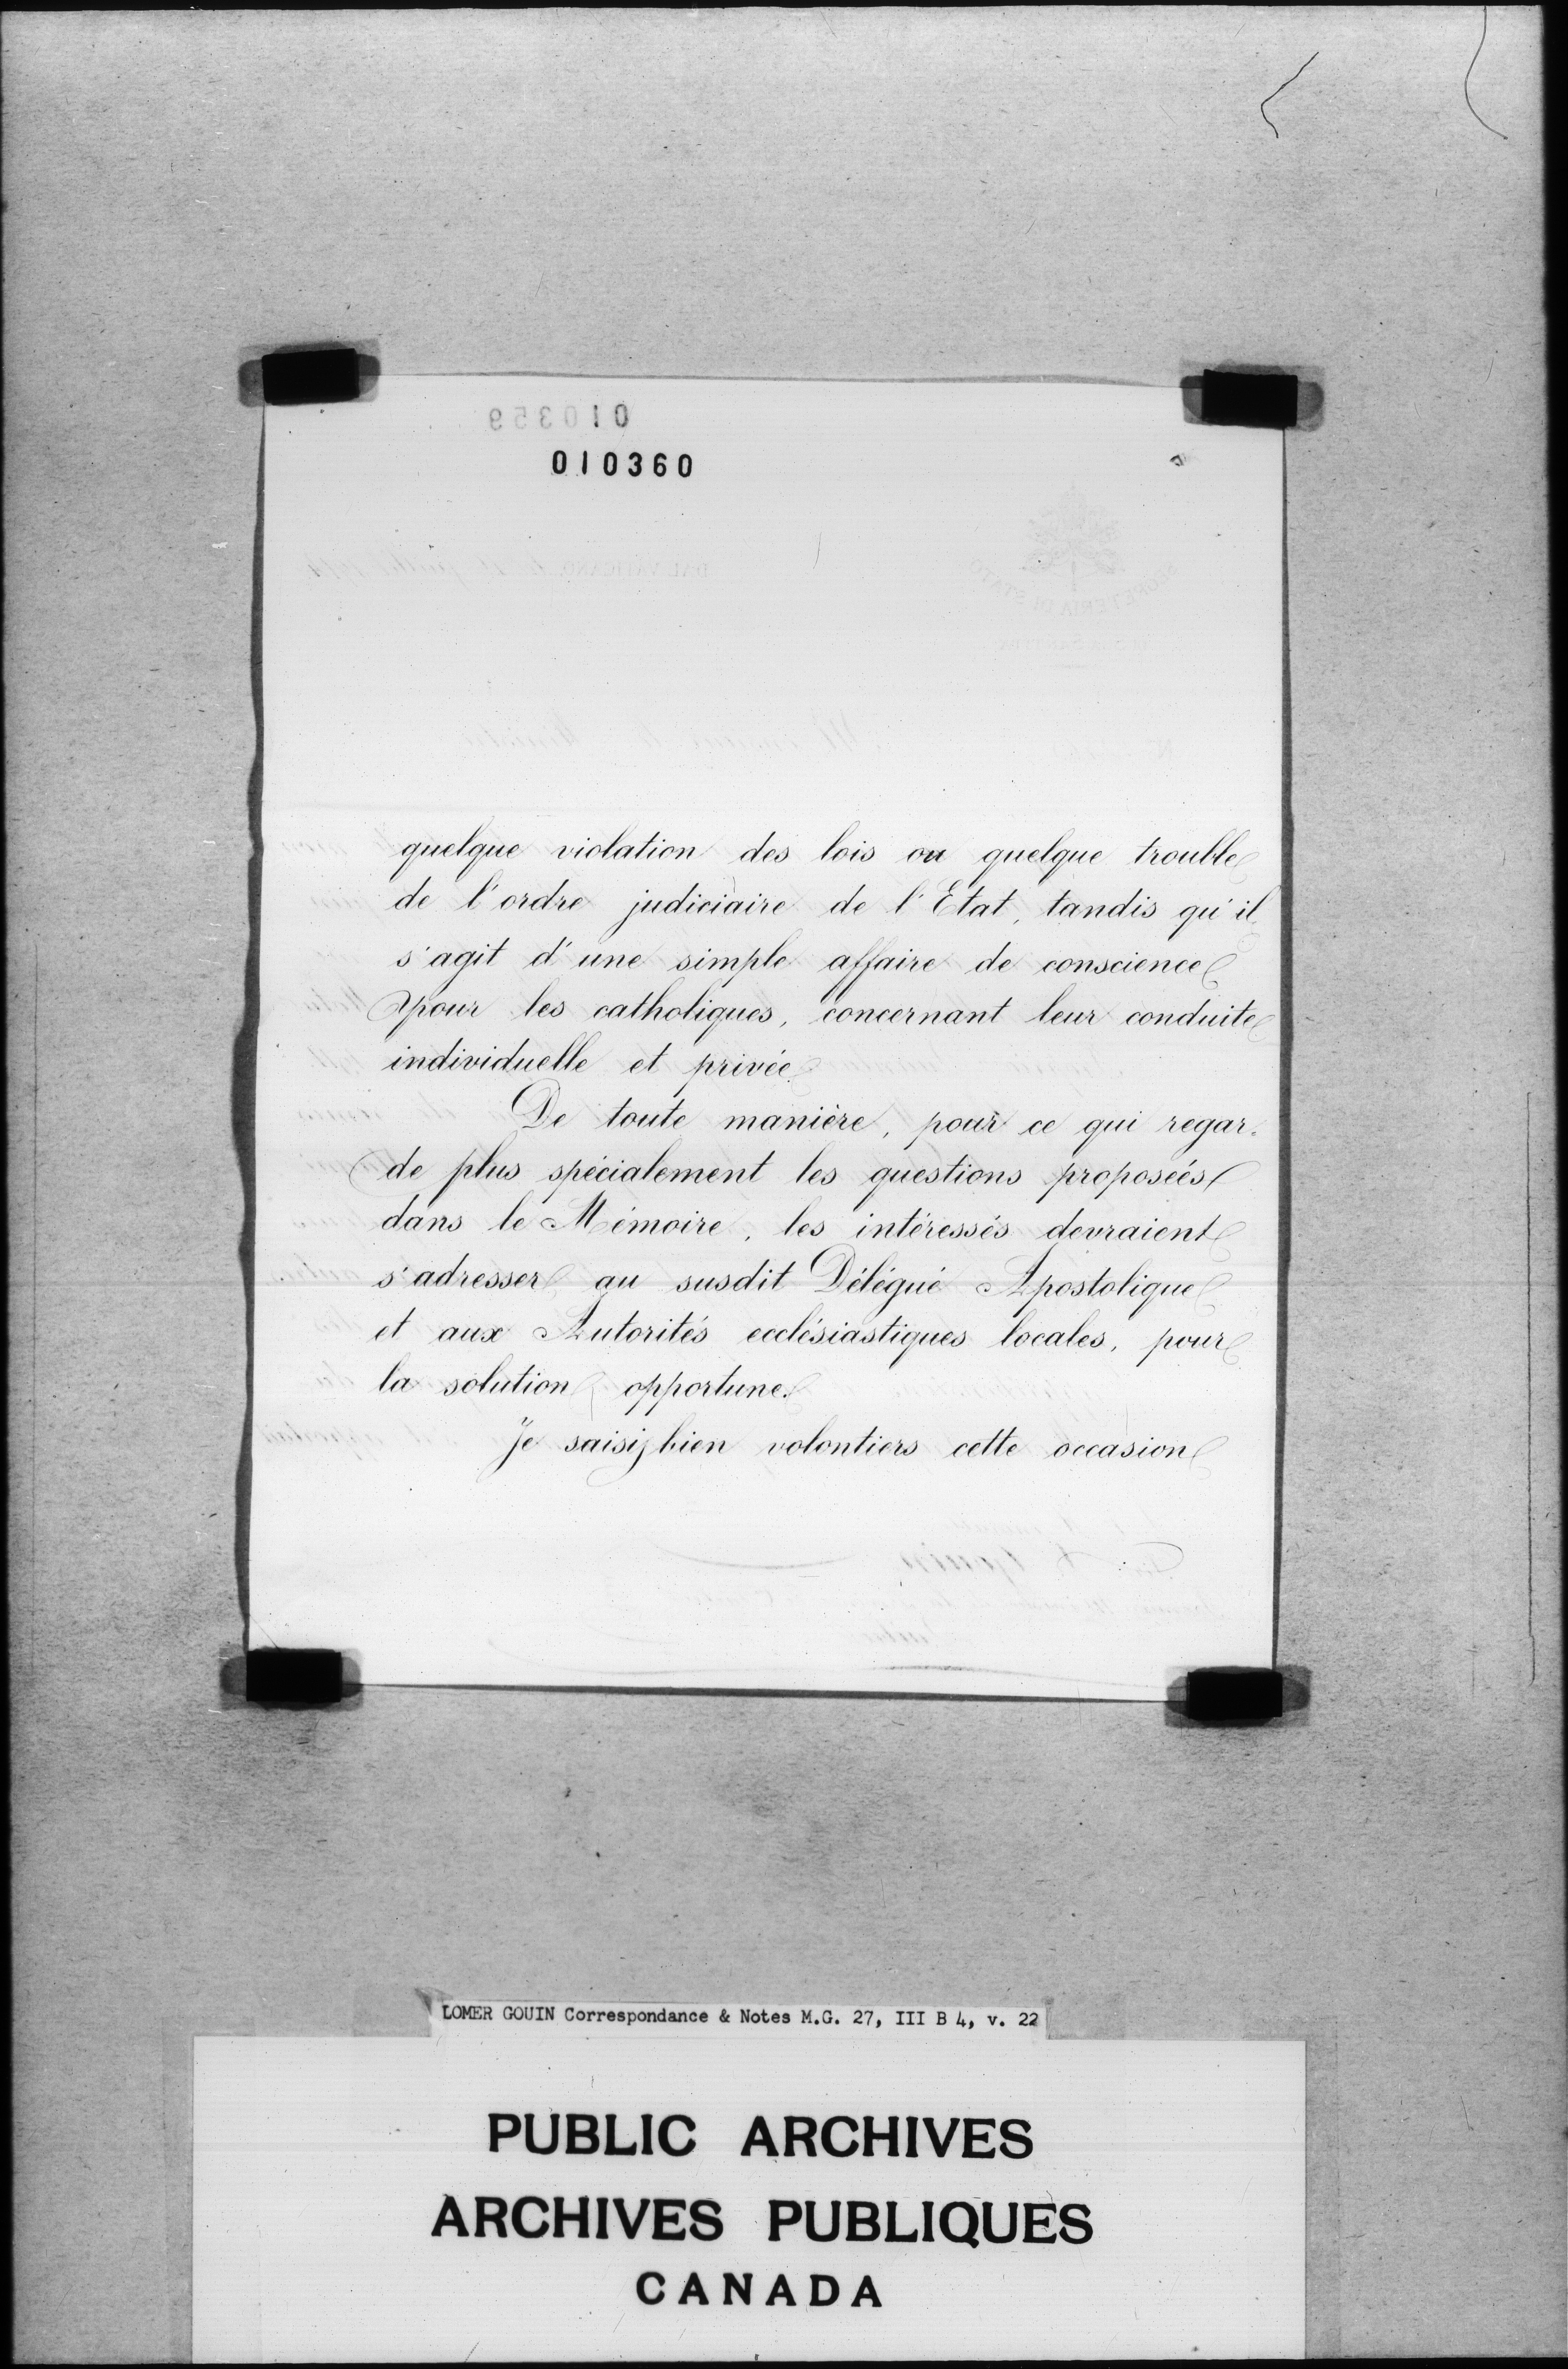 010359
010360
DAL VATICANO
SEGRETERIA DI STATO
quelque violation des lois ou quelque trouble
de l'ordre judiciaire de l'Etat, tandis qu'il
s'agit d'une simple affaire de conscience
pour les catholiques, concernant leur conduite
individuelle et privée.
De toute manière, pour ce qui regar-
de plus spécialement les questions proposées
dans le Mémoire, les intéressés devraient
s'adresser au susdit Délégué Apostolique
et aux Autorités ecclésiastiques locales, pour
la solution opportune.
Je saisis bien volontiers cette occasion
LOMER GOUIN Correspondance & Notes M.G. 27, III B 4, v. 22
PUBLIC ARCHIVES
ARCHIVES PUBLIQUES
CANADA